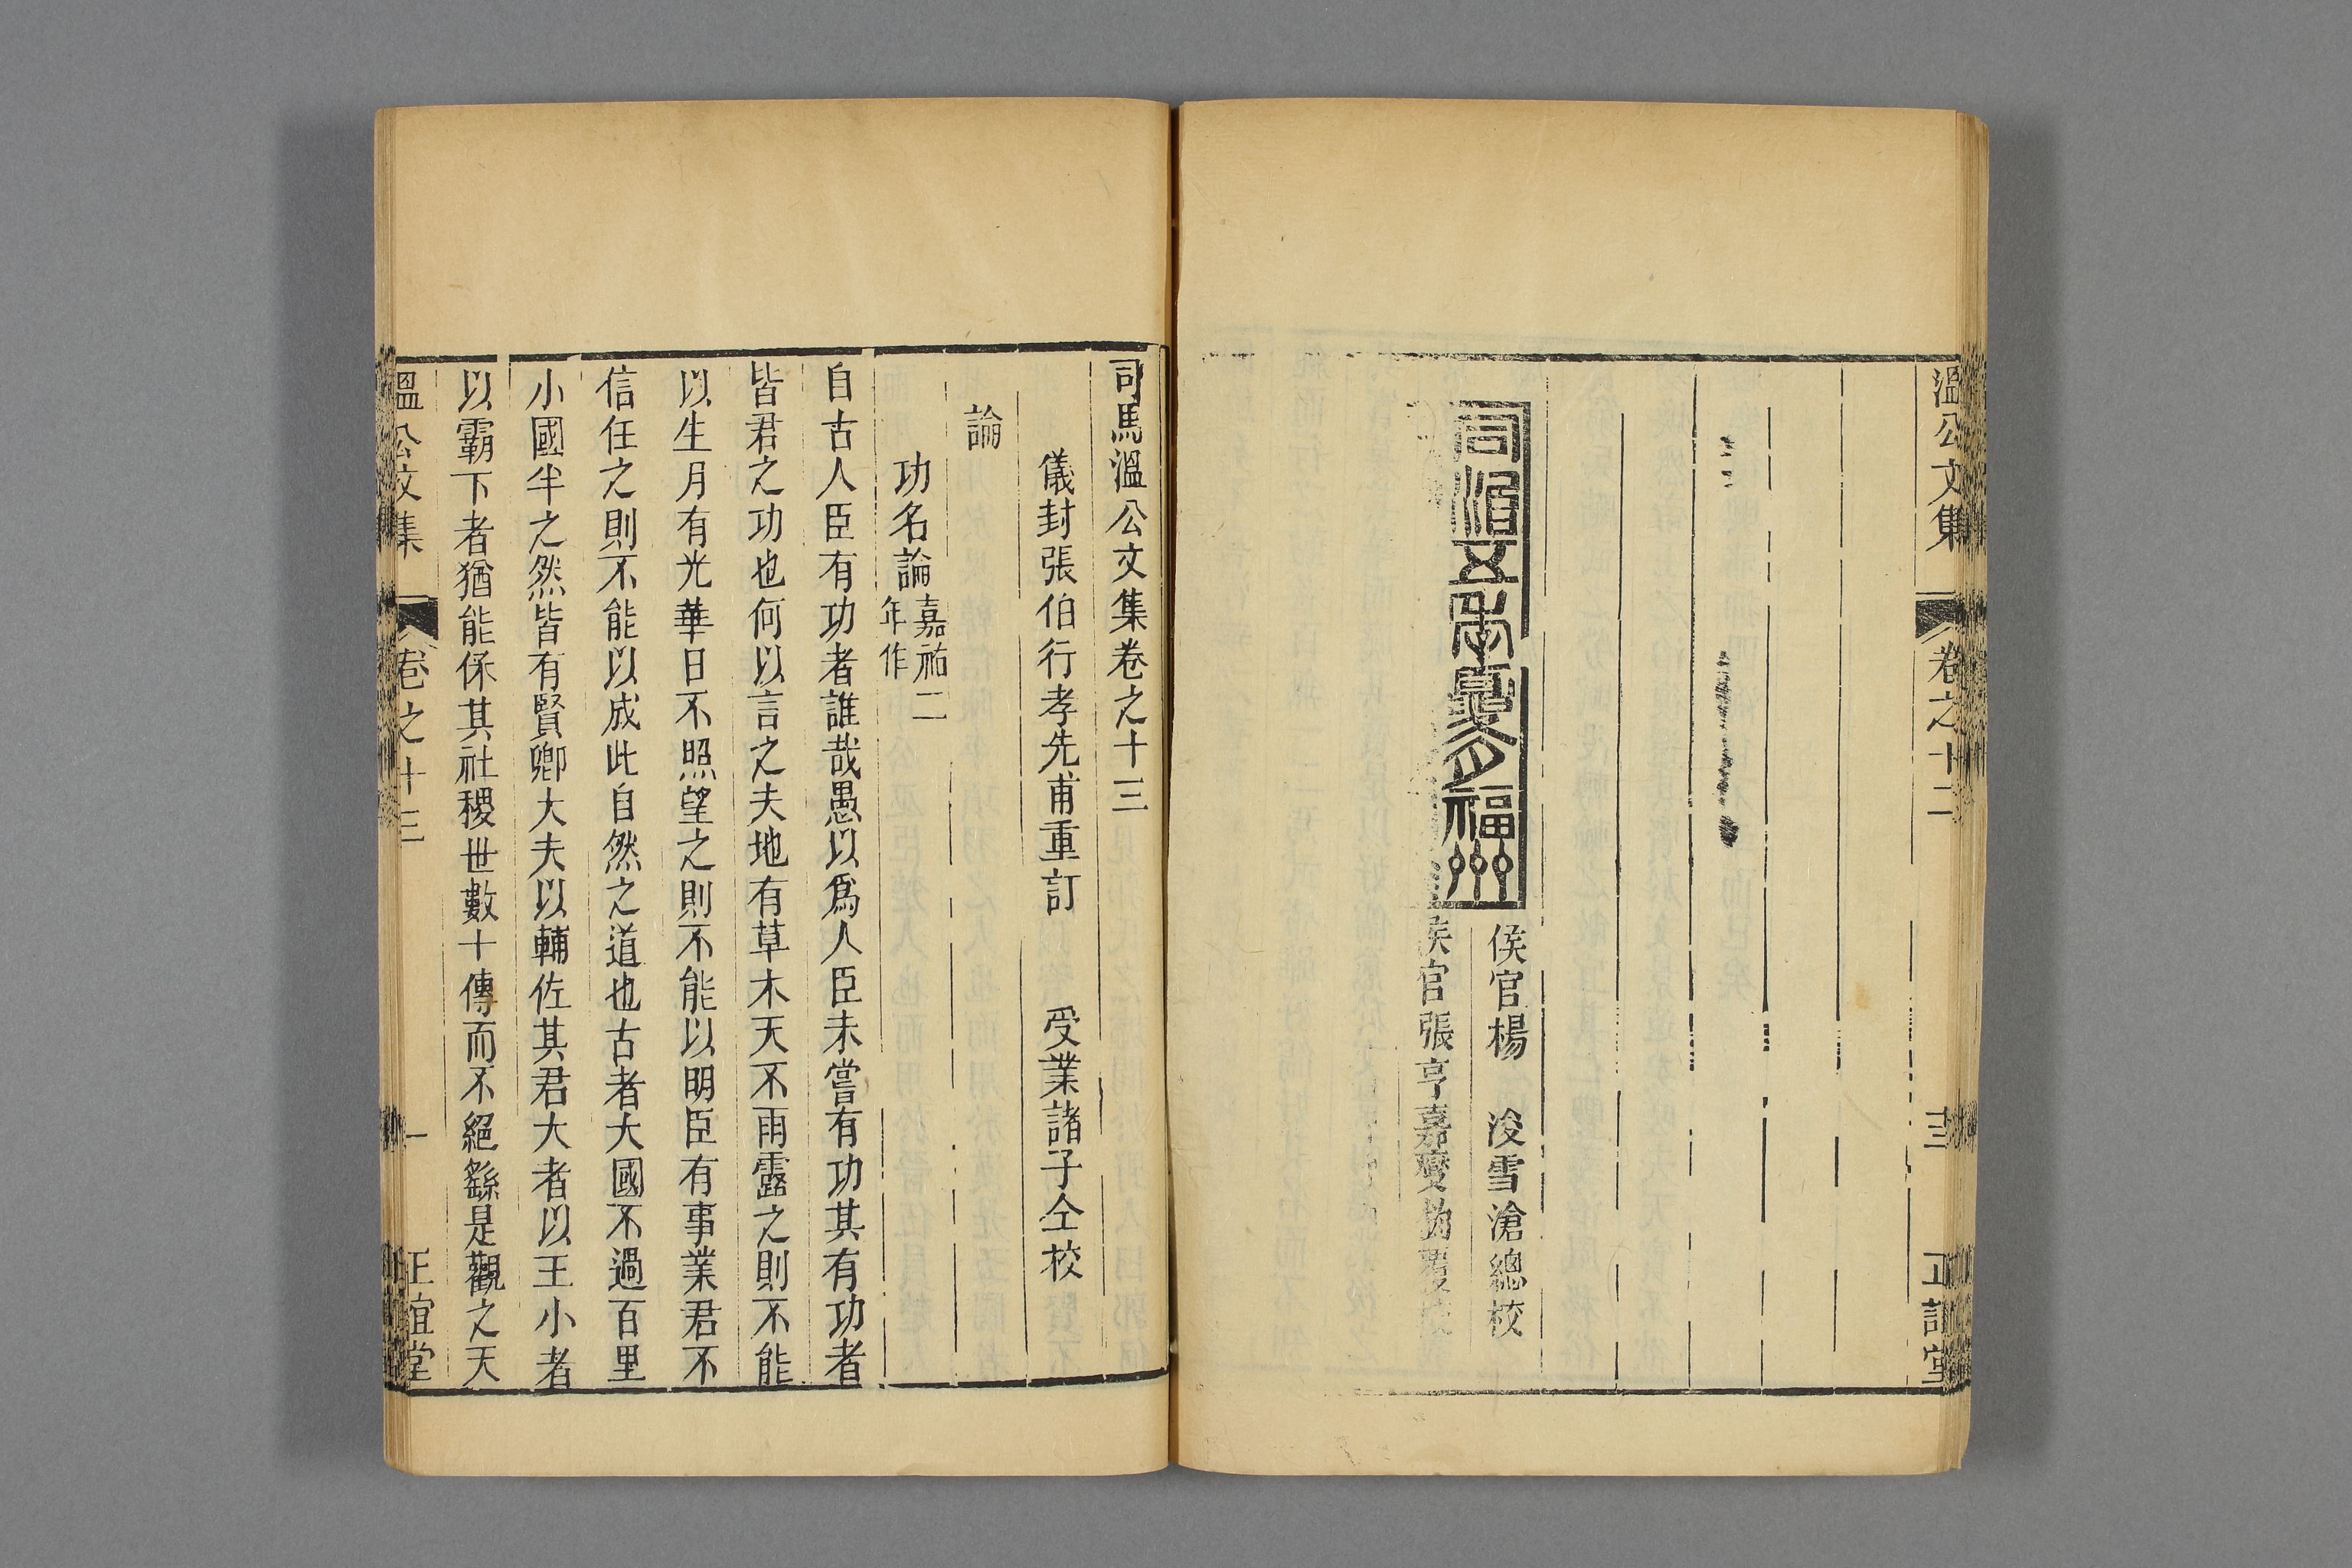 溫公文集 卷之十二 十三 正誼堂
同治五年夏月福州
侯官楊 浚雪滄總校
侯官張亨嘉爕鈞覆
司馬溫公文集卷之十三
儀封張伯行孝先甫重訂 受業諸子仝校
論
功名論嘉祐二年作
自古人臣有功者誰哉愚以爲人臣未嘗有功其有功者
皆君之功也何以言之夫地有草木天不雨露之則不能
以生月有光華日不照望之則不能以明臣有事業君不
信任之則不能以成此自然之道也古者大國不過百里
小國半之然皆有賢卿大夫以輔佐其君大者以王小者
以霸下者猶能保其社稷世數十傳而不絕繇是觀之天
溫公文集 卷之十三 一 正誼堂